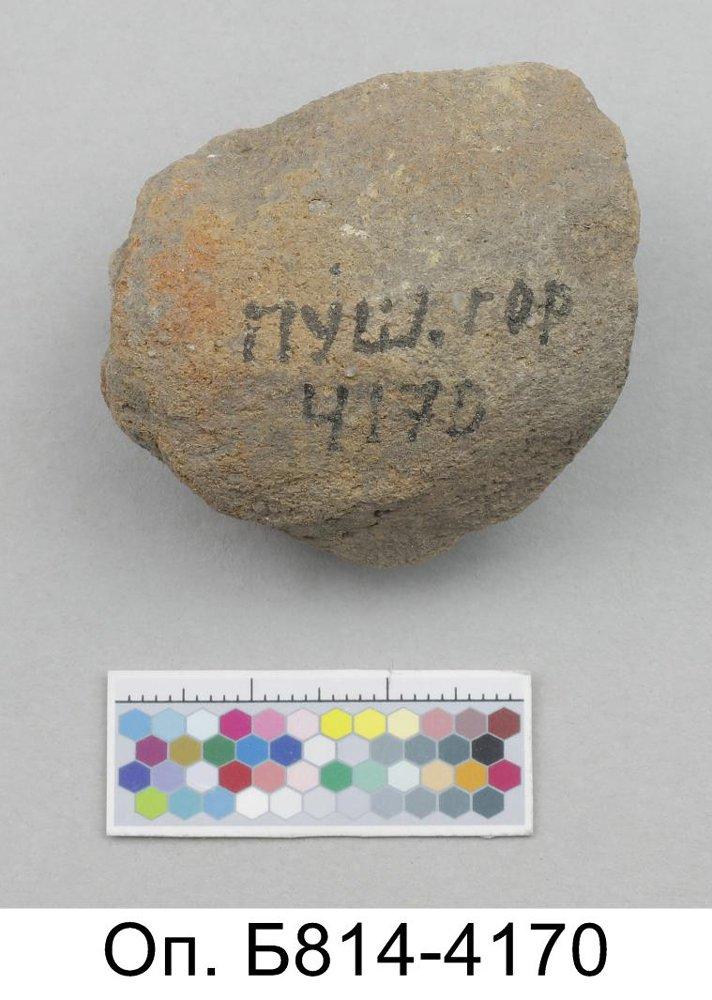 пуш. гор
4170
Оп. Б814-4170